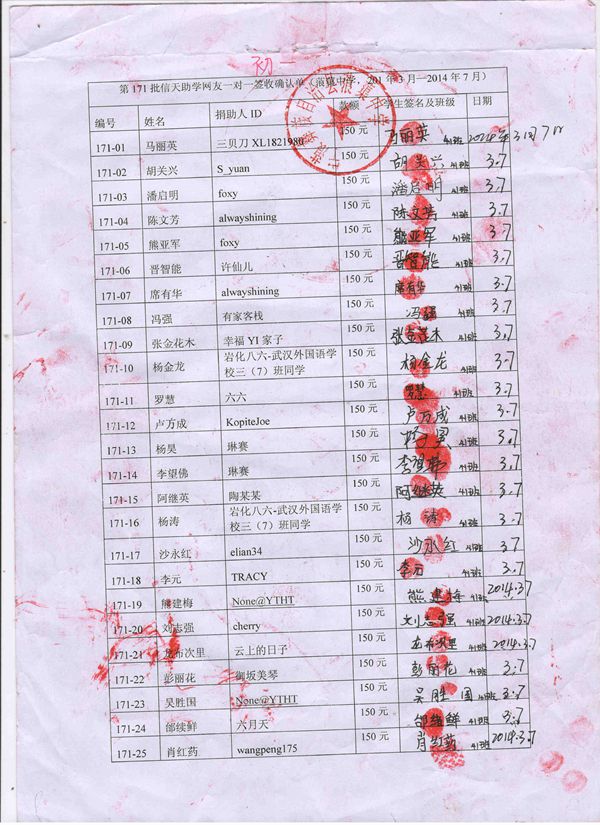 初一
第171批信天助学网友一对一签收确认单（蒗蕖中学，201 年3月—2014年7月）
编号 姓名 捐助人ID 款额 学生签名及班级 日期
171-01 马丽英 三贝刀 XL1821980 150元 马丽英 41班 2014年3月7日
171-02 胡关兴 S_yuan 150元 胡关兴 41班 3.7
171-03 潘启明 foxy 150元 潘启明 41班 3.7
171-04 陈文芳 alwayshining 150元 陈文芳 41班 3.7
171-05 熊亚军 foxy 150元 熊亚军 41班 3.7
171-06 晋智能 许仙儿 150元 晋智能 41班 3.7
171-07 席有华 alwayshining 150元 席有华 41班 3.7
171-08 冯强 有家客栈 150元 冯强 41班 3.7
171-09 张金花木 幸福 YI 家子 150元 张金花木 41班 3.7
171-10 杨金龙 岩化八六-武汉外国语学 150元 杨金龙 41班 3.7
校三（7）班同学
171-11 罗慧 六六 150元 罗慧 41班 3.7
171-12 卢万成 KopiteJoe 150元 卢万成 41班 3.7
171-13 杨昊 琳赛 150元 杨昊 41班 3.7
171-14 李望佛 琳赛 150元 李望佛 41班 3.7
171-15 阿继英 陶某某 150元 阿继英 41班 3.7
171-16 杨涛 岩化八六-武汉外国语学 150元 杨涛 41班 3.7
校三（7）班同学
171-17 沙永红 elian34 150元 沙永红 41班 3.7
171-18 李元 TRACY 150元 李元 41班 3.7
171-19 熊建梅 None@YTHT 150元 熊建梅 41班 2014.3.7
171-20 刘志强 cherry 150元 刘志强 41班 2014.3.7
171-21 龙布次里 云上的日子 150元 龙布次里 41班 2014.3.7
171-22 彭丽花 御坂美琴 150元 彭丽花 41班 3.7
171-23 吴胜国 None@YTHT 150元 吴胜国 41班 3.7
171-24 邰续鲜 六月天 150元 邰续鲜 41班 3.7
171-25 肖红药 wangpeng175 150元 肖红药 41班 2014.3.7